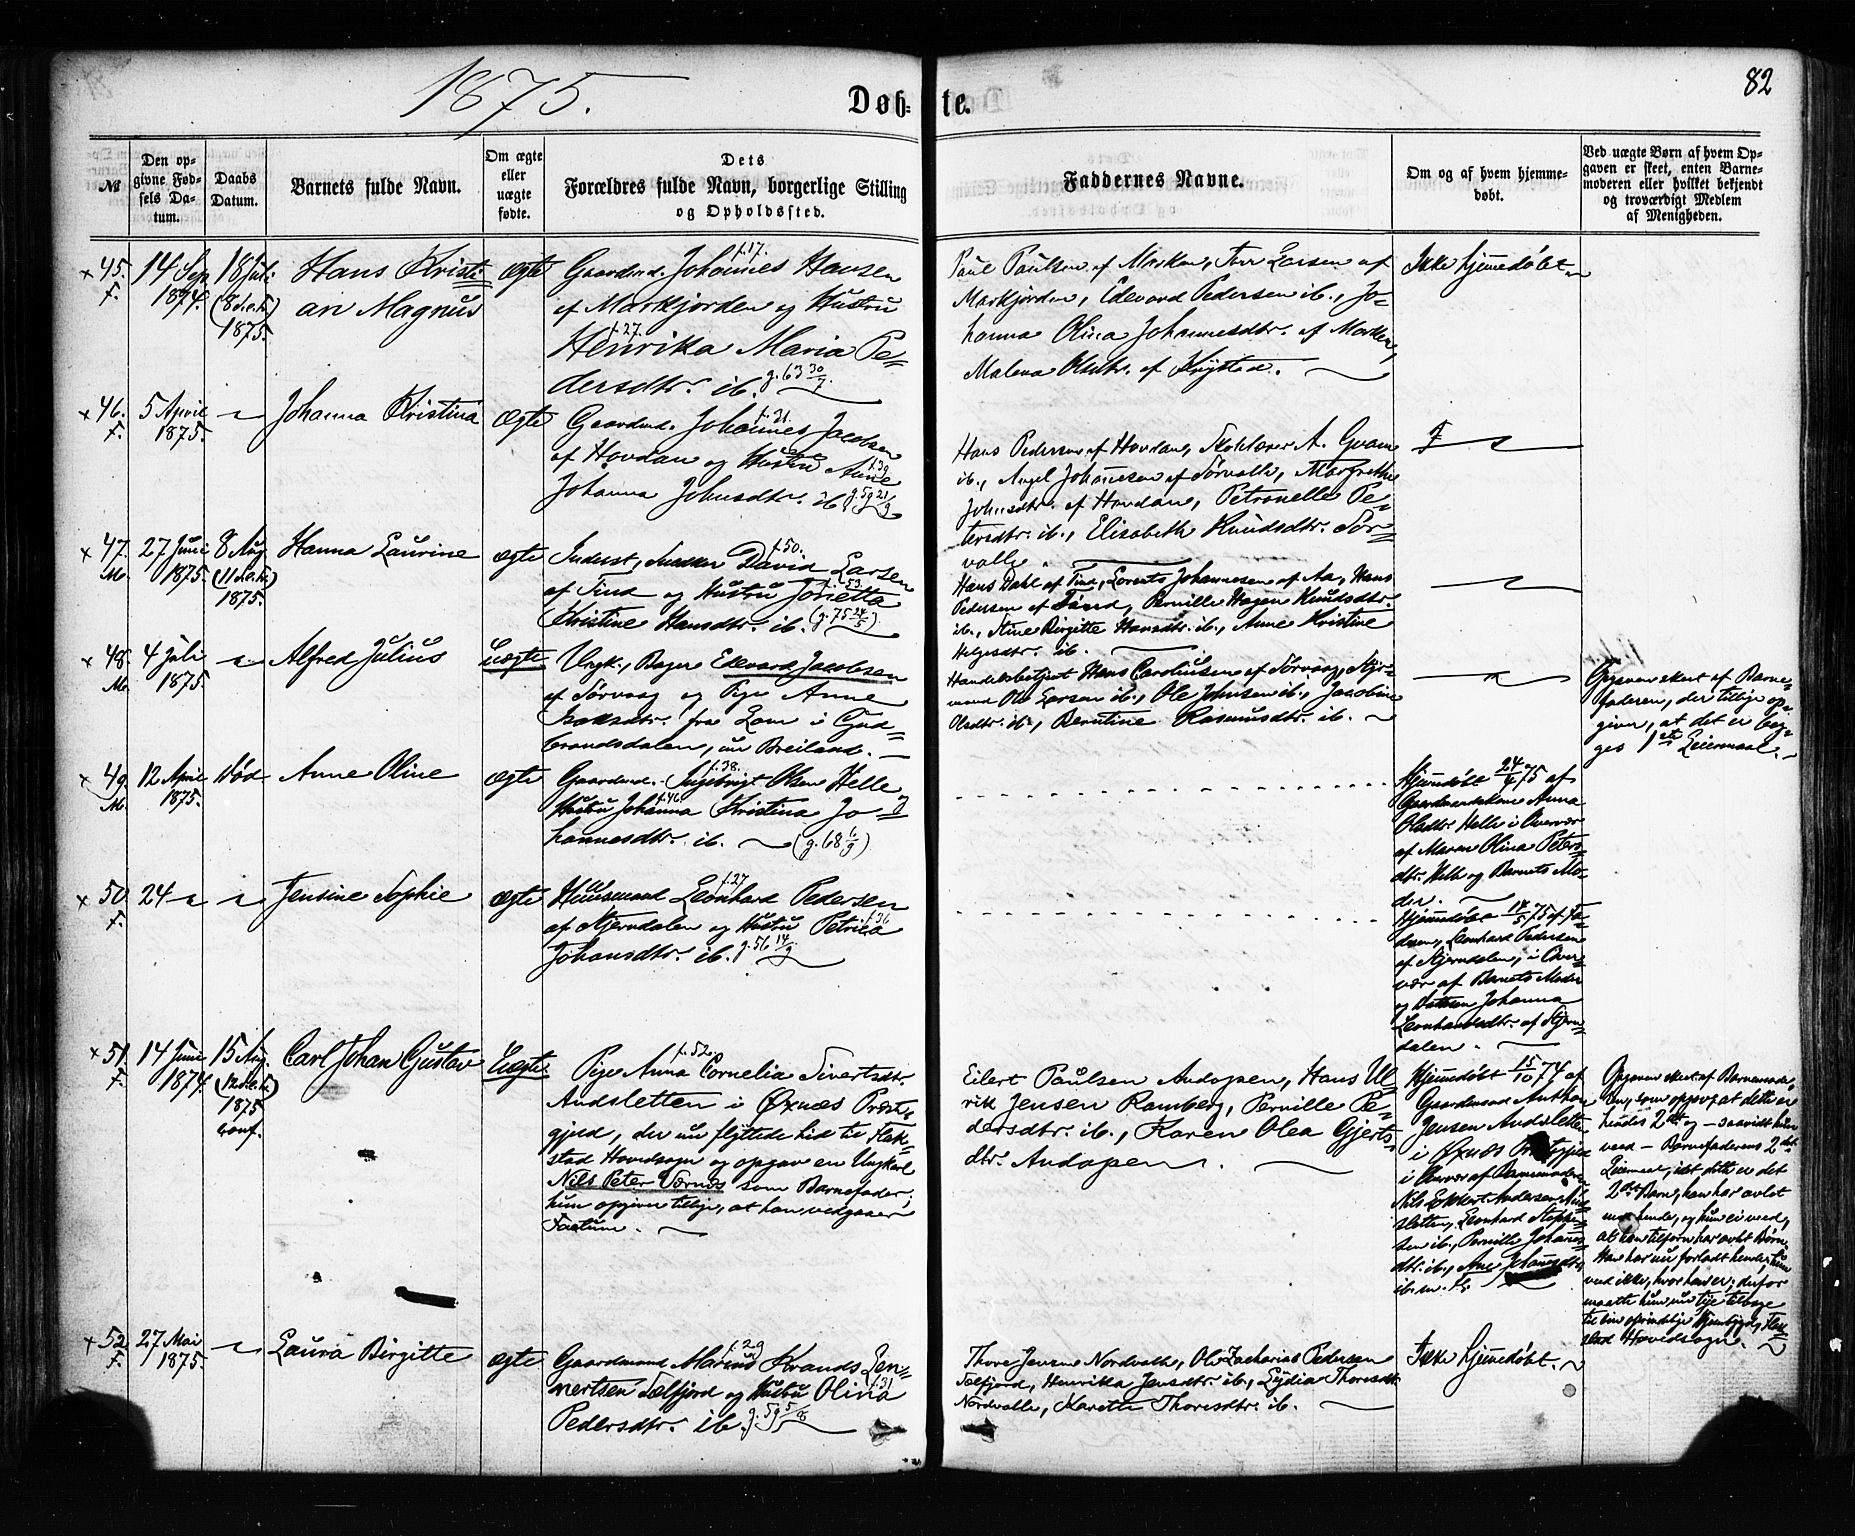 1875.
Døb-te.
82
№
Den op-
givne Fød-
sels Da-
tum.
Daabs
Datum.
Barnets fulde Navn.
Om ægte
eller
uægte
fødte.
Dets
Forældres fulde Navn, borgerlige Stilling
og Opholdssted.
Faddernes Navne.
Om og af hvem hjemme-
døbt.
Ved uægte Børn af hvem Op-
gaven er skeet, enten Barne-
moderen eller hvilket bekjendt
og troværdigt Medlem
af Menigheden.
× 45.
F.
14 Sep
1874.
18 Juli
1875.
Hans Kristi-
an Magnus
ægte
f. 17.
Gaardmd. Johannes Hansen
af Markjorden og Hustru
f. 27.
Henrika Maria Pe-
dersdtr. ib. g. 63 30/7.
Paul Paulsen af Marken, Larsen af
Markjorden, Edevard Pedersen ib., Jo-
hanna Olina Johannesdtr. af Marken,
Malena Olsdtr. af
Ikke hjemmedøbt
× 46.
F.
5 April
1875.
Johanna Kristina
ægte
f. 31.
Gaardmd. Johannes Jacobsen
af Hovdan og Hustru Anne
f. 39
Johanna Johnsdtr. ib. g. 59 21/9
Hans Pedersen af Hovdan, Skolelærer A. Gvam
ib., Angel Johannesen af Sørvalle, Margrethe
Johnsdtr. af Hovdan, Petronelle Pe-
tersdtr. ib., Elisabeth Knudsdtr. Sør-
valle.
× 47.
M.
27 Juni
1875.
8 Aug
1875.
Hanna Laurine
ægte
f. 50.
Inderst, David Larsen
f. 53.
af Tind og Hustru Jonetta
Kristine Hansdtr. ib. (g. 75 24/5)
Hans Dahl af Tind, Lorents Johannesen af Aa, Hans
Pedersen af Tind, Pernille Hagen Knudsdtr.
ib., Stine Birgitte Hansdtr. ib., Anne Kristine
Helgesdtr. ib.
× 48.
M.
4 Juli
1875.
Alfred Julius
uægte
Ungk., Bager Edevard Jacobsen
af Sørvaag og Pige Anne
Isaksdtr. fra Lom i Gud-
brandsdalen, nu Breiland.
Handelsbetjent Hans Caroliusen af Sørvaag,
Ole Larsen ib., Ole Johnsen ib., Jacobine
Olsdtr. ib., Berntine Rasmusdtr. ib.
Opgaven skeet af Barne-
faderen, der tillige op-
giver, at det er beg-
ges 1ste Leiermaal.
× 49.
M.
12 April
1875.
Død
Anne Oline
ægte
f. 38.
Gaardmd. Ingebrigt Olsen Helle og
f. 46.
Hustru Johanna Kristina Jo-
hannesdtr. ib. (g. 68 6/9)
Hjemmedøbt 24/4 75 af
Gaardmandskone Anna
Olsdtr. Helle i Overvær
af Maren Olina Peters-
dtr. Helle og Barnets Mo-
der.
× 50
F.
24
Jensine Sophie
ægte
f. 27
Huusmand Leonhard Pedersen
f. 36
af Stjerndalen og Hustru Petrica
Johansdtr. ib. g. 56 14/9
Hjemmedøbt 14/5 75 af Fa-
deren, Leonhard Pedersen
af Stjerndalen, i Over-
vær af Barnets Moder
og Datteren Johanna
Leonhardsdtr. af Stjern-
dalen.
× 51.
F.
14 Juni
1874.
15 Aug.
1875
conf.
Carl Johan Gustav
Uægte
f. 52.
Pige Anna Cornelia Sivertsdtr.
Andsletten i Øxnæs Præste-
gjeld, der nu flyttede hid til Flak-
stad Hovedsogn og opgav en Ungkarl
Nils Peter Værnæs som Barnefader;
hun opgiver tillige, at han vedgaaer
Factum.
Eilert Paulsen Andopen, Hans Ul-
rik Jensen Ramberg, Pernille Pe-
dersdtr. ib., Karen Olea Gjerts-
dtr. Andopen.
Hjemmedøbt 15/10 74 af
Gaardmand Anthon
Jensen Andsletten
i Øxnæs Præstegjeld
i Overvær af Barnemoderen
Nils Andersen And-
sletten, Leonhard
ib., Pernille Johans-
dtr. ib., Ane Johansdtr.
ib. m. fl.
Opgaven skeet af Barnemode-
ren, som opgav, at dette er
hendes 2det og – saavidt hun
veed – Barnefaderens 2det
Leiermaal, idet dette er det
2det Barn, han har avlet
med hende, og hun ei veed,
at han tilforn har avlet Børn.
Han har nu forladt hende; hun
ved ikke, hvor han er; derfor
maatte hun nu tye tilbage
til sin oprindelige Hjembygd, Flak-
stad Hovedsogn.
× 52
F.
27 Mai
1875.
Laura Birgitte
ægte
f. 29
Gaardmand Marius Strands Len-
f. 31
nertsen Sælfjord og Hustru Olina
Pedersdtr. ib. g. 59 5/8
Thore Jensen Nordvalle, Ole Zacharias Pedersen
Sælfjord, Henrikka Jensdtr. ib., Lydia Thoresdtr.
Nordvalle, Marette Thoresdtr. ib.
Ikke hjemmedøbt.